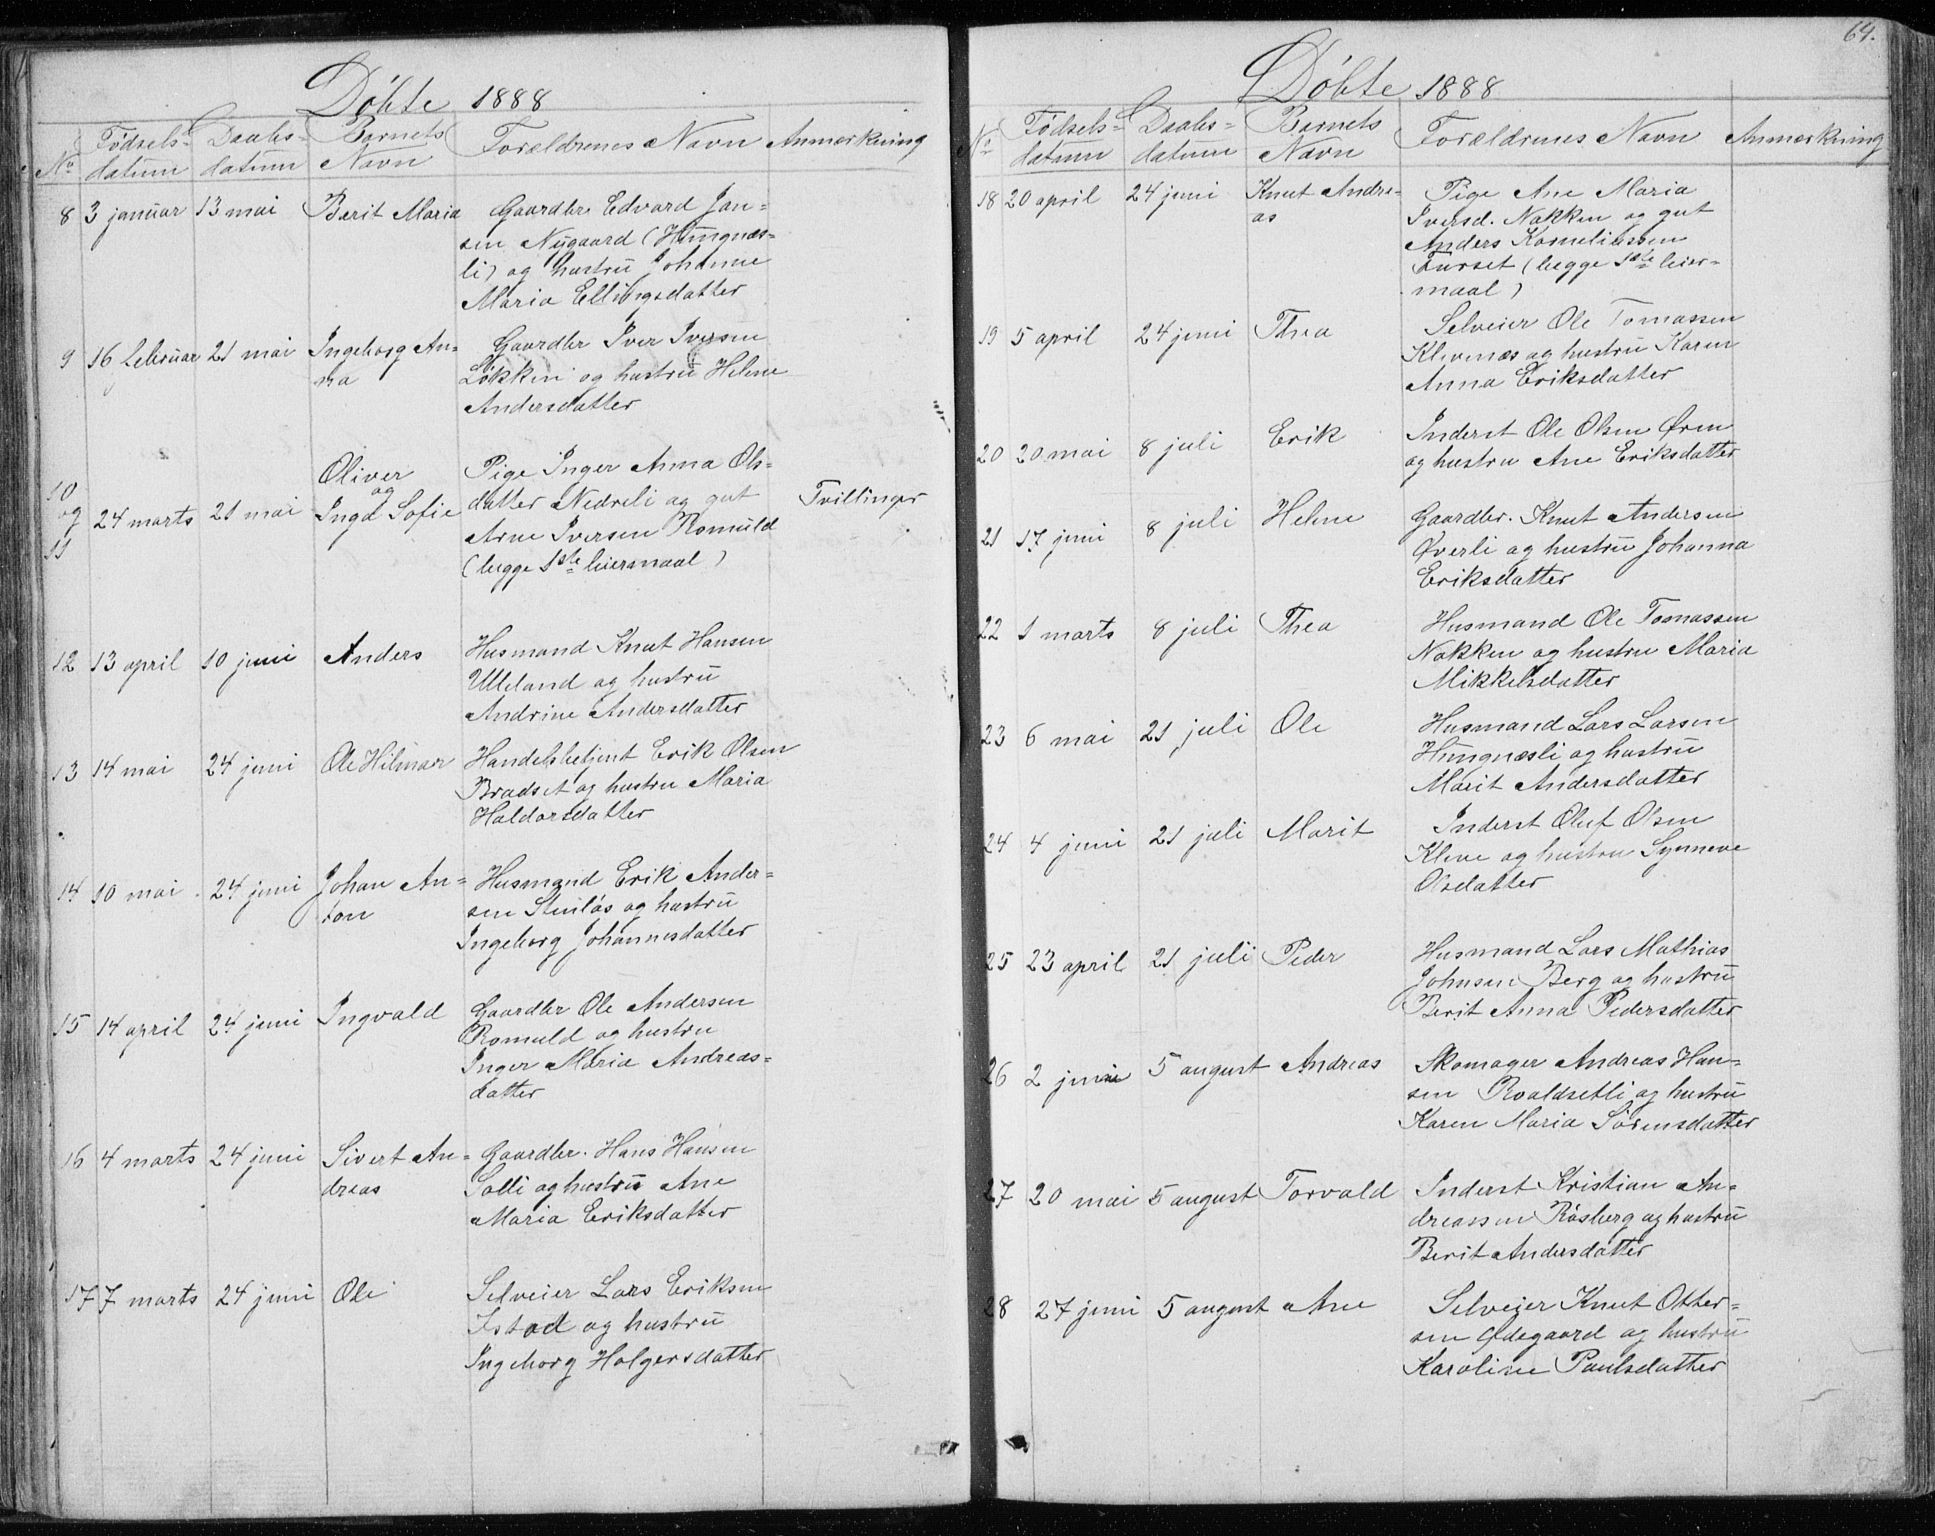 Döbte 1888
No Fødsels= datum Daabs= datum Barnets Navn Forældrenes Navn Anmerkning
8 3 januar 13 mai Berit Maria Gaardbr. Edvard Jan=
sen Nygaard (Hungnæs=
li) og hustru Johanne
Maria Ellingsdatter
9 16 februar 21 mai Ingeborg An= Gaardbr Iver Iversen
na Løkken og hustru Helene
Andersdatter
10 Oliver Pige Inger Anna Ols=
og 24 marts 21 mai og datter Nedreli og gut Tvillinger
11 Inga Sofie Arne Iversen Romuld
(begge 1ste leiermaal)
12 13 april 10 juni Anders Husmand Knut Hansen
Ulleland og hustru
Andrine Andersdatter
13 14 mai 24 juni Ole Hilmar Handelsbetjent Erik Olsen
Bradset og hustru Maria
Haldorsdatter
14 10 mai 24 juni Johan An= Husmand Erik Ander=
ton sen Stenløs og hustru
Ingeborg Johannesdatter
15 14 april 24 juni Ingvald Gaardbr Ole Andersen
Romuld og hustru
Inger Maria Andreas=
datter
16 4 marts 24 juni Sivert An= Gaardbr. Hans Hansen
dreas Solli og hustru Ane
Maria Eriksdatter
17 7 marts 24 juni Ole Selveier Lars Eriksen
Istad og hustru
Ingeborg Holgersdatter
64.
Döbte 1888
No Fødsels= datum Daabs= datum Barnets Navn Forældrenes Navn Anmærkning
18 20 april 24 juni Knut Andre= Pige Ane Maria
as Iversd. Nakken og gut
Anders Korneliussen
Furset (begge 1ste leier=
maal)
19 5 april 24 juni Thea Selveier Ole Tomassen
Klevenæs og hustru Karen
Anna Eriksdatter
20 20 mai 8 juli Erik Inderst Ole Olsen Øren
og hustru Ane Eriksdatter
21 17 juni 8 juli Helene Gaardbr. Knut Andersen
Øverli og hustru Johanna
Eriksdatter
22 1 marts 8 juli Thea Husmand Ole Tomassen
Nakken og hustru Maria
Mikkelsdatter
23 6 mai 21 juli Ole Husmand Lars Larsen
Hungnæsli og hustru
Marit Andersdatter
24 4 juni 21 juli Marit Inderst Oluf Olsen
Kleve og hustru Synneve
Olsdatter
25 23 april 21 juli Peder Husmand Lars Mathias
Johnsen Berg og hustru
Berit Anna Pedersdatter
26 2 juni 5 august Andreas Skomager Andreas Han=
sen Roaldsetli og hustru
Karen Maria Sörensdatter
27 20 mai 5 august Torvald Inderst Kristian An=
dreassen Røsberg og hustru
Berit Andersdatter
28 27 juni 5 august Ane Selveier Knut Otter=
sen Ødegaard og hustru
Karoline Paulsdatter